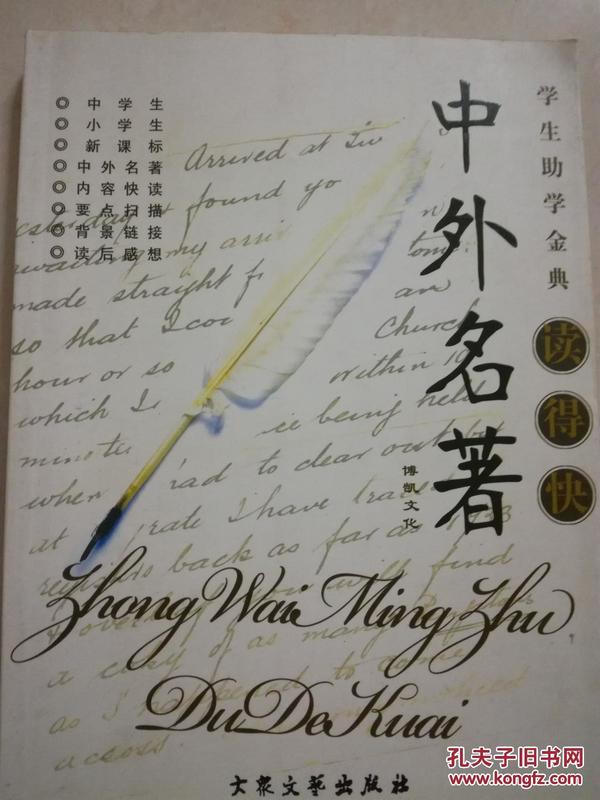 ◎ 中学生
◎ 小学生
◎ 新课标
◎ 中外名著
◎ 内容快读
◎ 要点扫描
◎ 背景链接
◎ 读后感想
学生助学金典
中外名著
读得快
博凯文化
Arrived at
found yo
made straight
so that I
Church
hour or so
within
which
being held
minutes
when had to clear out
at I have
back as far as
find
a copy of as many
as I
across
Zhong Wai Ming Zhu
Du De Kuai
大众文艺出版社
孔夫子旧书网
www.kongfz.com